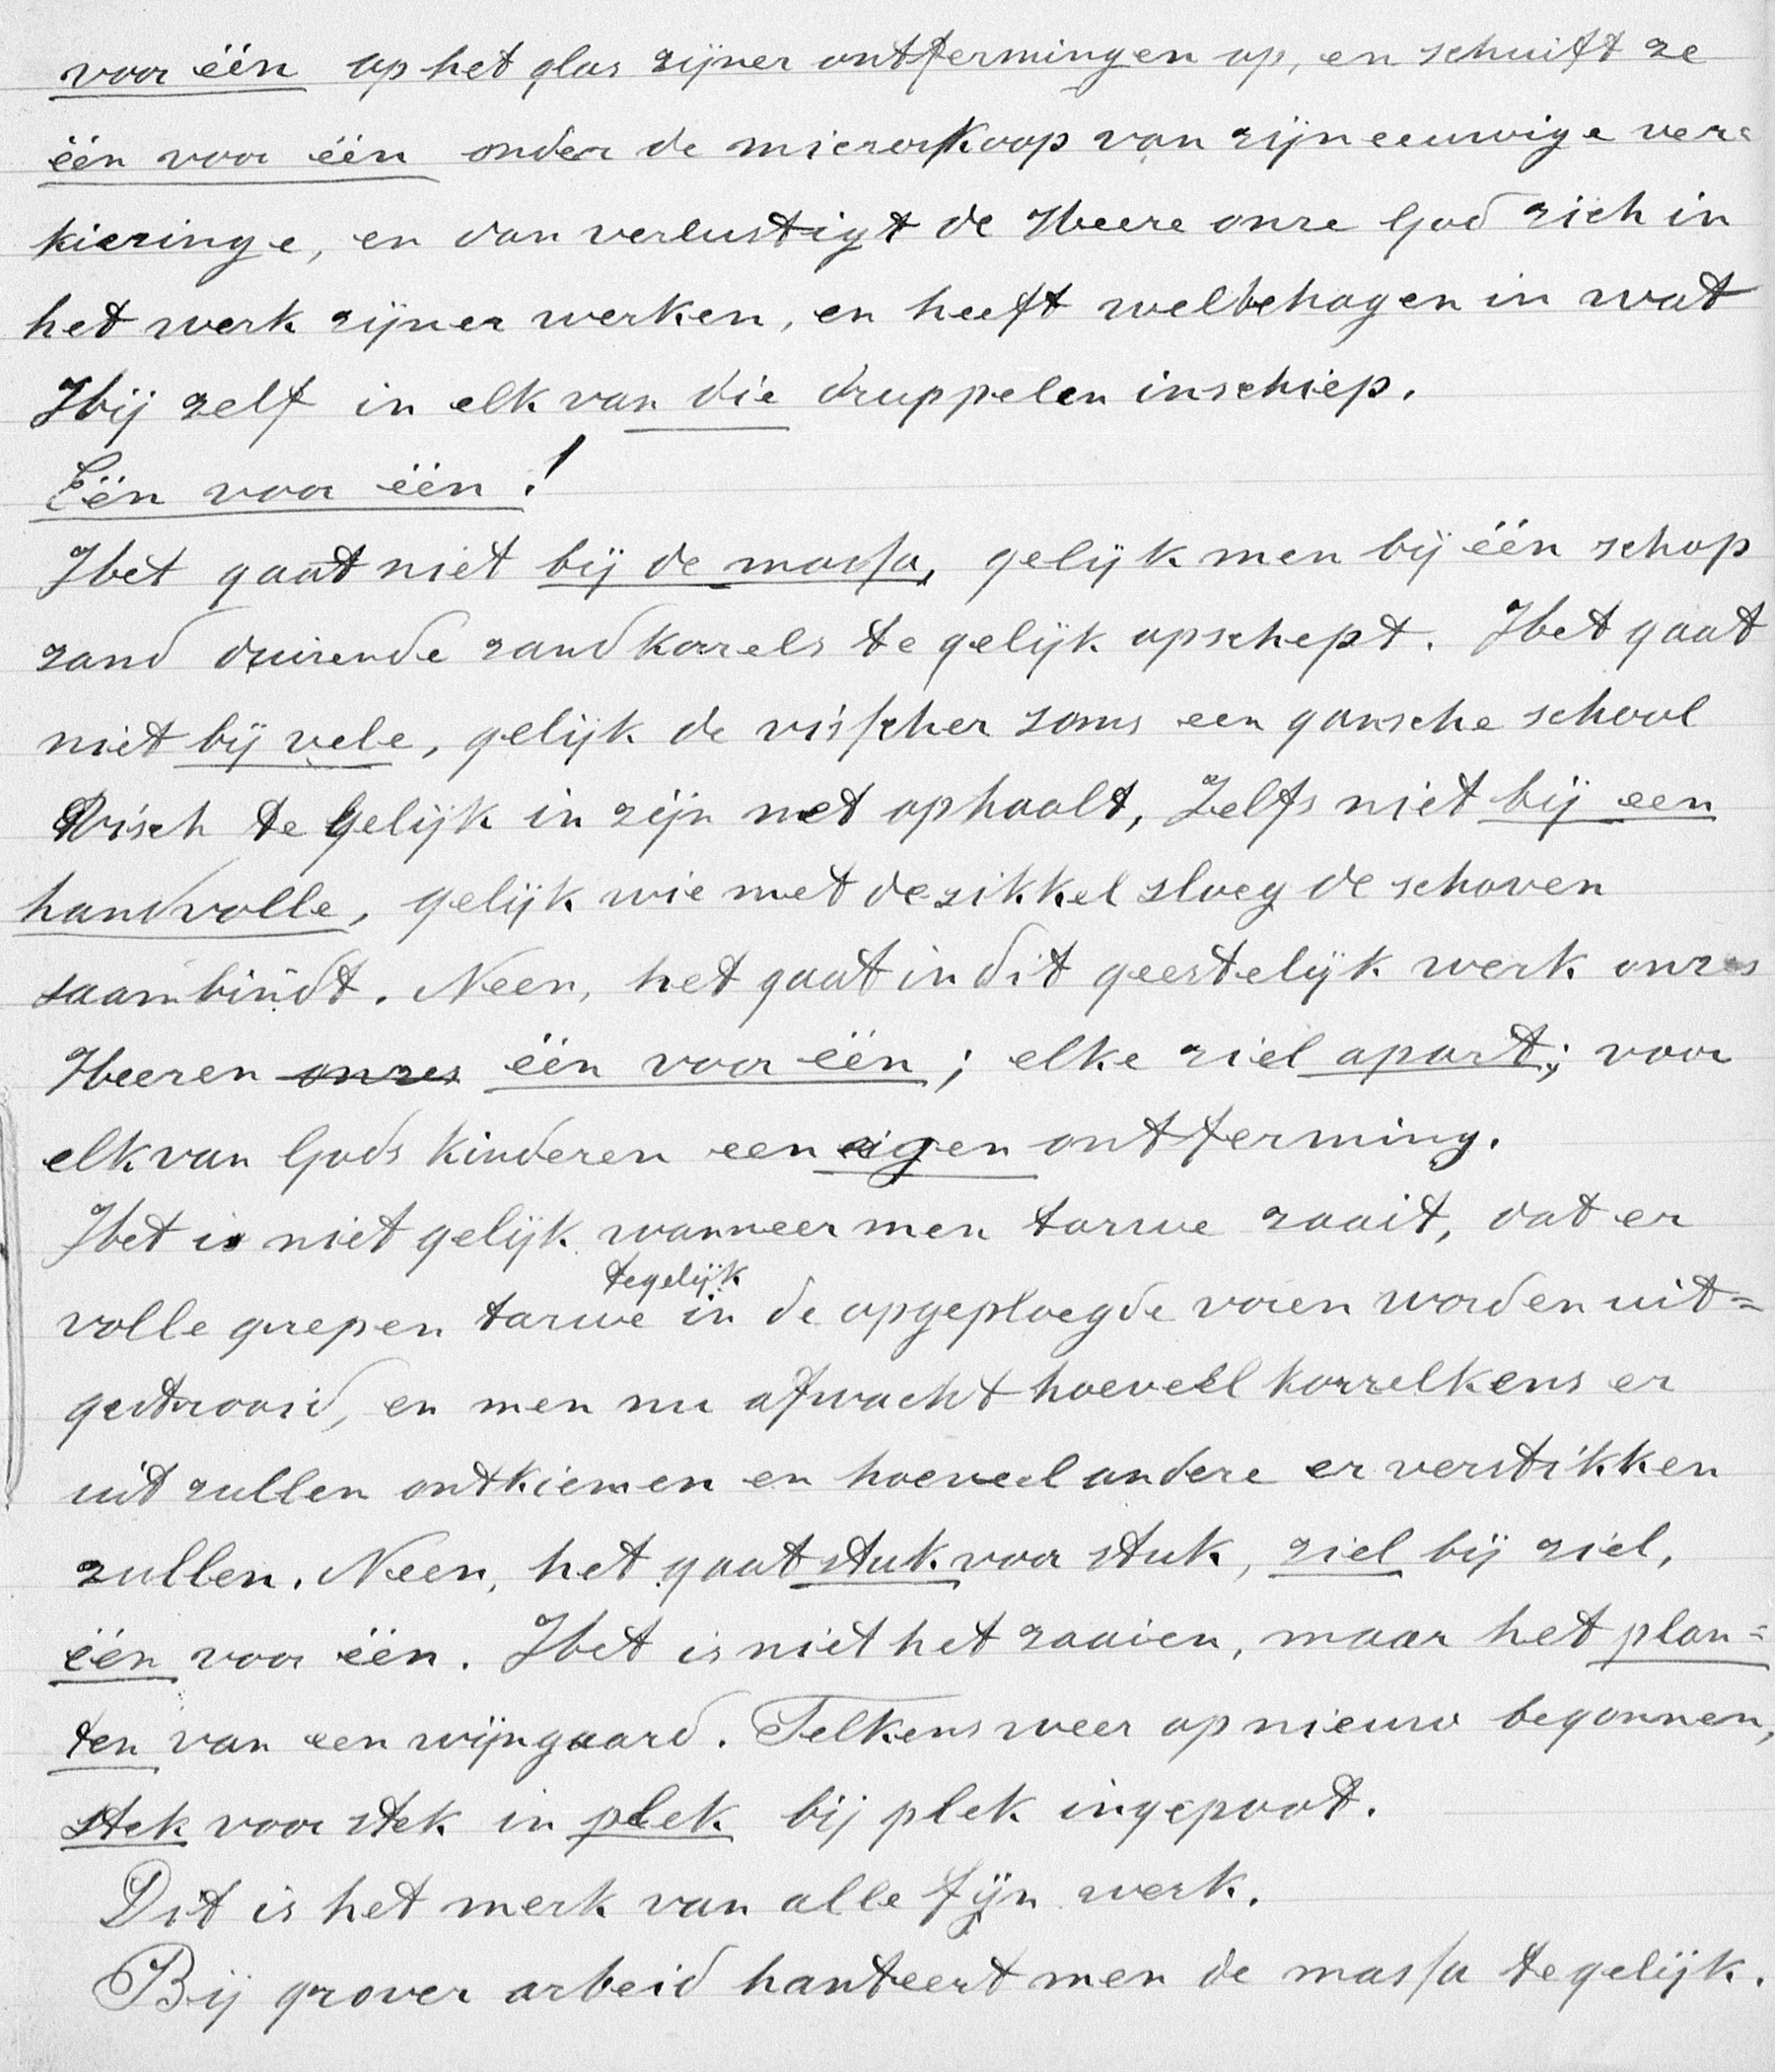 voor één op het glas zijner ontfermingen op, en schuift ze
één voor één onder de microskoop van zijn eeuwige ver=
kieringe, en dan verlustigt de Heere onze God zich in
het werk zijner werken, en heeft welbehagen in wat
Hij zelf in elk van die druppelen inschiep.
Eén voor één!
Het gaat niet bij de massa, gelijk men bij één schop
zand duizende zandkorrels te gelijk opschept. Het gaat
niet bij vele, gelijk de visscher soms een gansche school
Visch te gelijk in zijn net ophaalt, Zelfs niet bij een
handvolle, gelijk wie met de zikkel sloeg de schoven
saambindt. Neen, het gaat in dit geestelijk werk onzes
Heeren onzes één voor één; elke ziel apart; voor
elk van Gods kinderen een eigen ontferming.
Het is niet gelijk wanneer men tarwe zaait, dat er
tegelijk
volle grepen tarwe in de opgeploegde voren worden uit=
gestrooid, en men nu afwacht hoeveel korrelkens er
uit zullen ontkiemen en hoeveel andere er verstikken
zullen. Neen, het gaat stuk voor stuk, ziel bij ziel,
één voor één. Het is niet het zaaien, maar het plan=
ten van een wijngaard. Telkens weer opnieuw begonnen,
stek voor stek in plek bij plek ingepoot.
Dit is het merk van alle fijn werk.
Bij grover arbeid hanteert men de massa tegelijk.